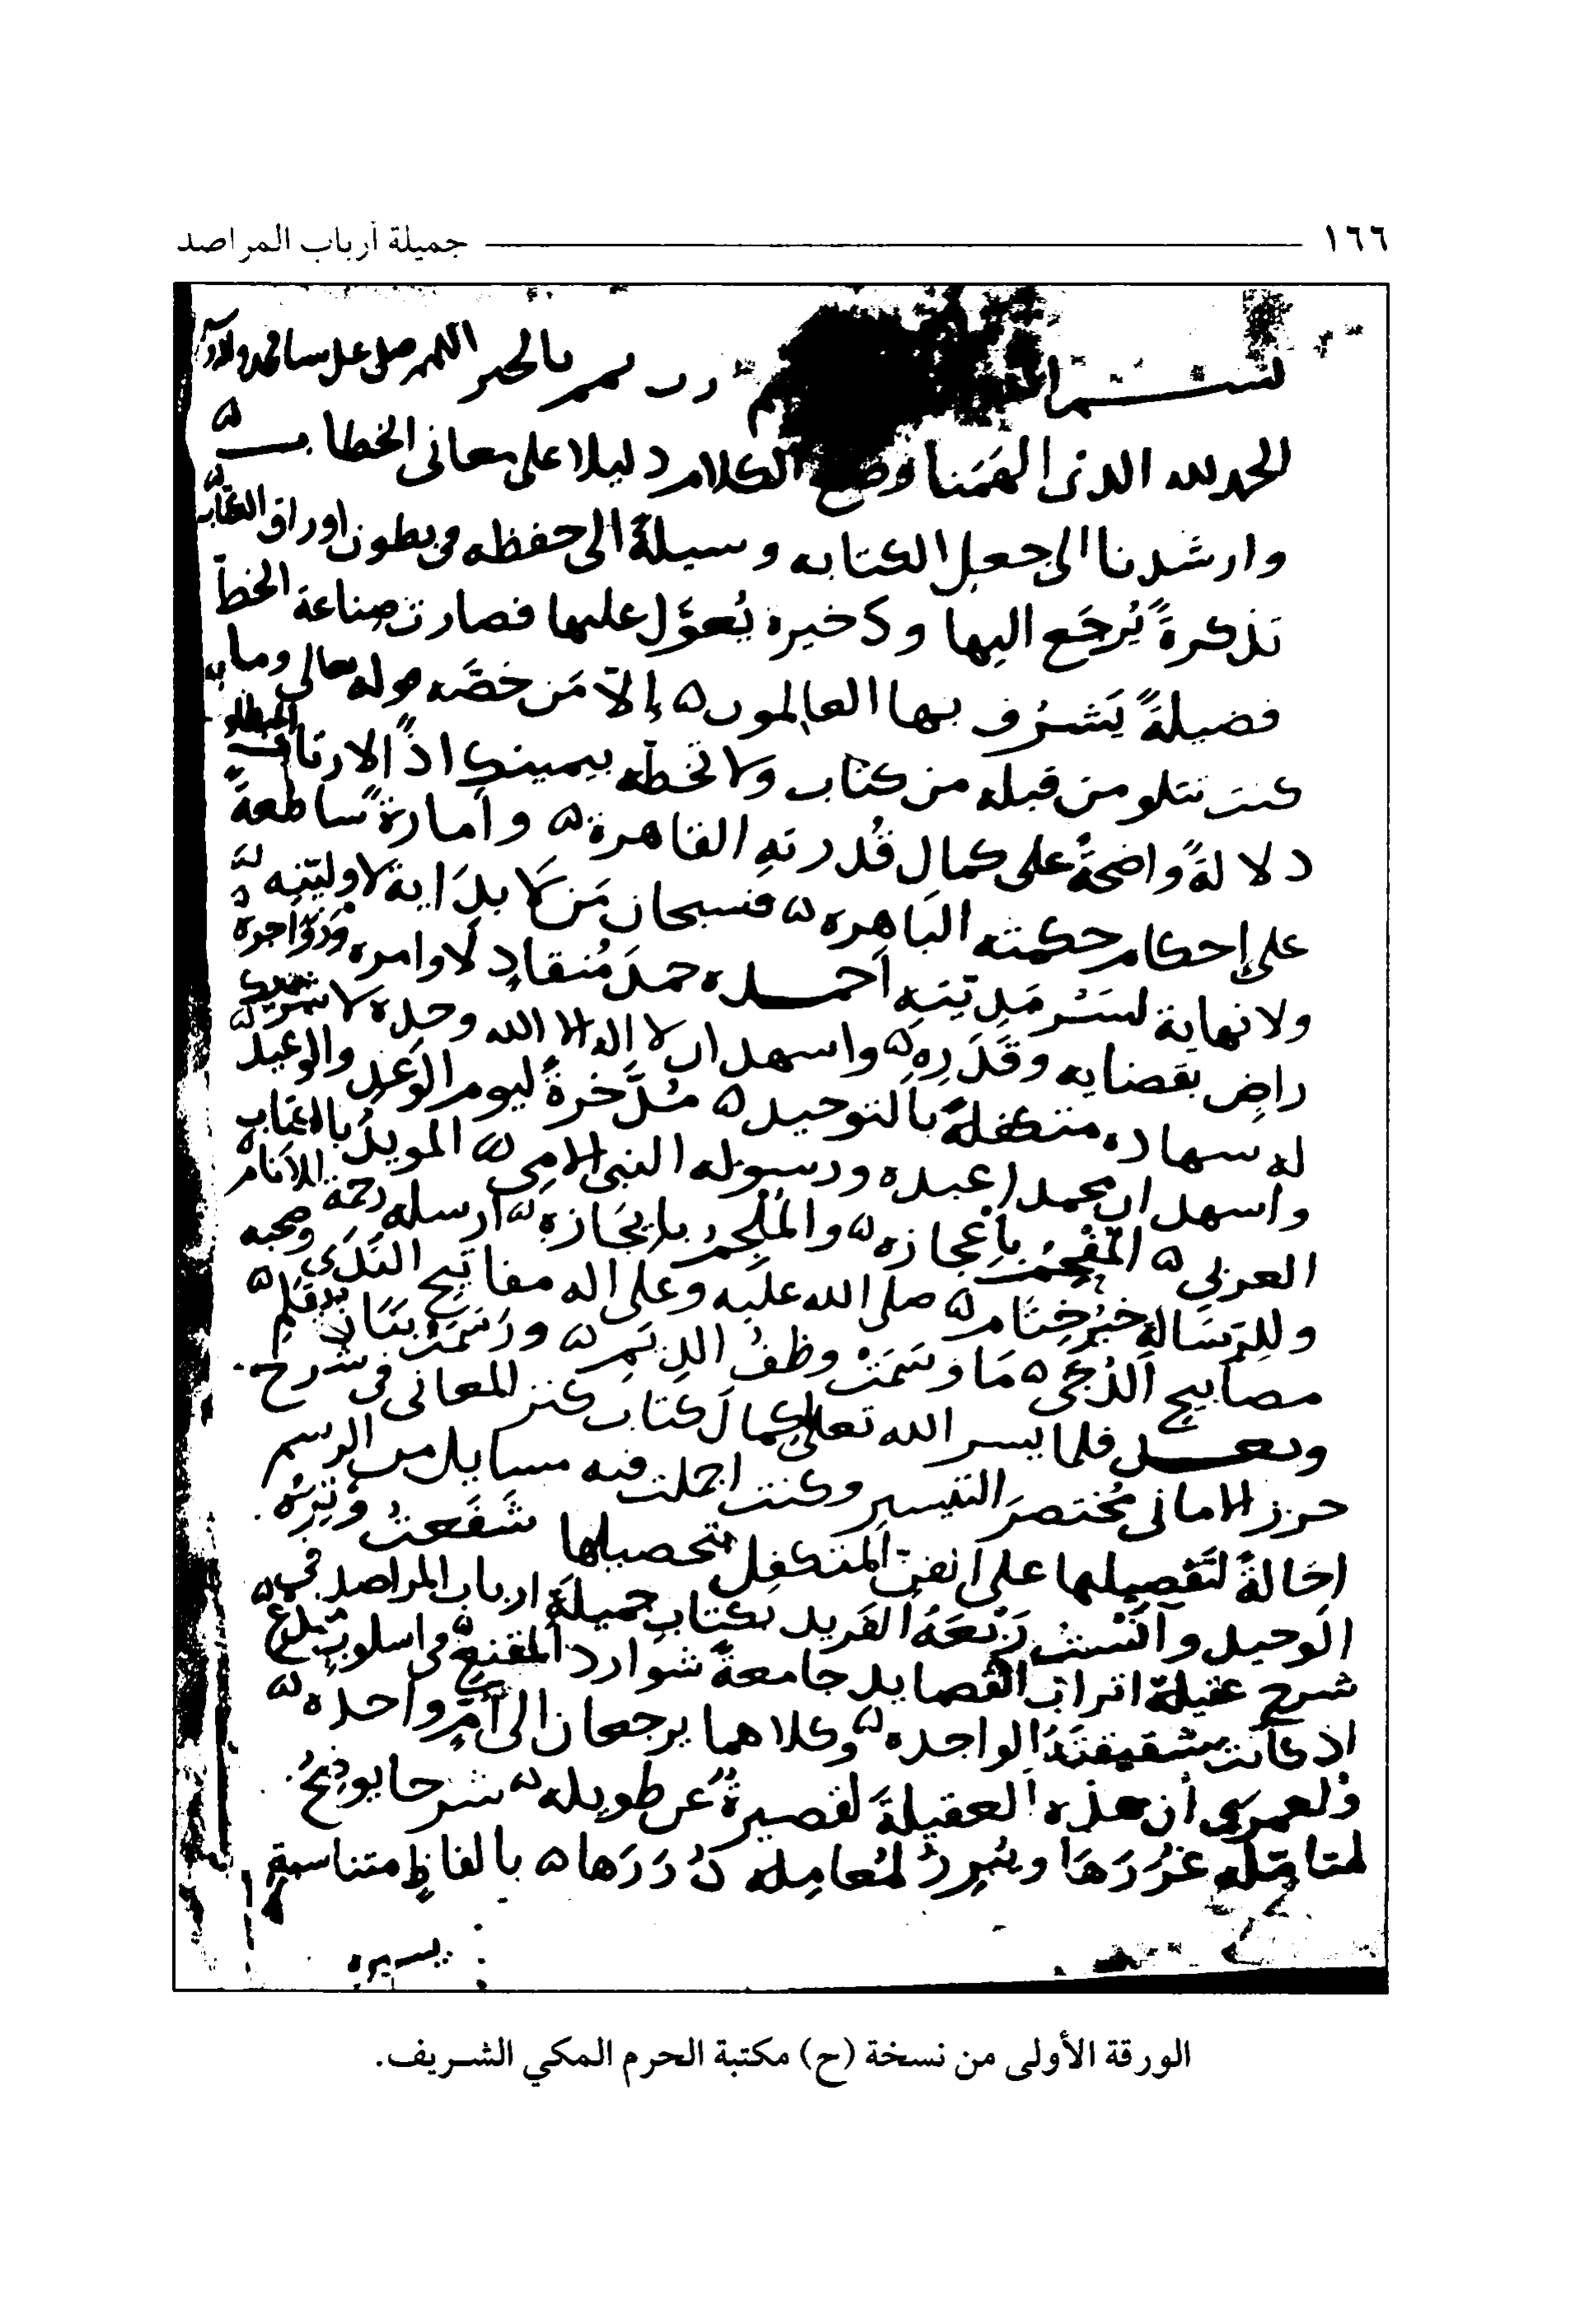 ١٦٦ جميلة أرباب المراصد
بسم رب تمم بالخير اللهم صل على
الحمد لله الذى الهمنا وضع الكلام دليلا على معانى الخطاب
وارشدنا الى جعل الكتابه وسيلةً الى حفظه فى بطون اوراق
تذكرةً يُرجَع اليها وذخيره يُعوَّل عليها فصارت صِناعة الخط
فضيلةً يَشرُف بها العالمون إلّا مَن خصَّه قوله تعالى وما
كنت تتلو من قبله من كتاب ولا تخطّه بيمينك اذًا لارتاب المبطلون
دلالةً واضحةً على كمال قُدرتهِ القاهرة وأمارةً ساطعةً
على إحكام حكمته الباهره فسبحان مَن لا بدَاية لاوليّتِه
ولا نهاية لسَرمَدِيّتِهِ أحمده حمدَ مُنقادٍ لأوامره وزواجره
راضٍ بقضايه وقَدَرِهِ واشهد ان لا اله الا الله وحده لا شريك
له شهاده متكفلةً بالتوحيد مُدَّخرةً ليوم الوعد والوعيد
واشهد ان محمدا عبده ورسوله النبى الامى المويدُ بالكتاب
العربى المُفْحِمُ بإعجازه والمُلْجِمُ بإيجازهِ ارسله رحمة للانام
وللرسالةِ خيرُ خِتام صلى الله عليه وعلى اله مفاتيح النَدَى وصحبه
مصابيح الدُجَى مَا وسَمَتْ وظفُ الدِيَمِ ورَسَمَتْ بَنَان قلم
وبعد فلما يسر الله تعالى اكمالَ كتاب كنز المعانى فى شرح
حرز الامانى مُختصَر التيسير وكنت اجملت فيه مسايل من الرسم
إحالةً لتَفصِيلها على الفنِّ المتكفِل بتحصيلها شَفَعتُ وِترَهُ
الوحيد وآنَستُ رَبْعَهُ الفَريد بكتاب جميلة ارباب المراصد فى
شرح عقيلة اتراب القصايد جامعةً شوارد المقنع فى اسلوب
اذ كانت شقيقتَهُ الواحده وكلاهما يرجعان الى أُمٍّ واحده
ولعمرى أن هذه العقيلةَ لقصيرةٌ عن طويله شرحا يوضِحُ
لمتأمِله غُرَرَهَا ويُبرِزُ لمُعامِله دُرَرَها بالفاظٍ متناسبة
يسيره
الورقة الأولى من نسخة (ح) مكتبة الحرم المكي الشريف.